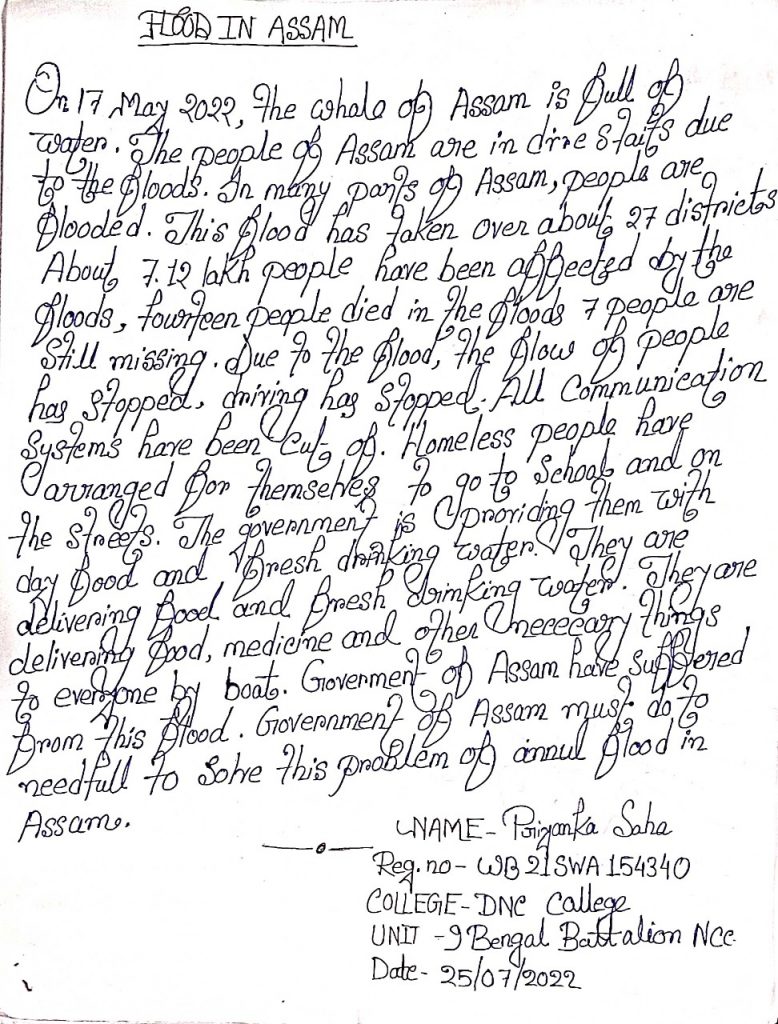 FLOOD IN ASSAM
On 17 May 2022, the whale of Assam is full of
water. The people of Assam are in dire staits due
to the floods. In many parts of Assam, people are
flooded. This flood has taken over about 27 districts
About 7.12 lakh people have been affected by the
floods, fourteen people died in the floods 7 people are
still missing. Due to the flood, the flow of people
has stopped, driving has stopped. All Communication
systems have been cut of. Homeless people have
arranged for themselves to go to school and on
the streets. The government is providing them with
day food and fresh drinking water. They are
delivering food and fresh drinking water. They are
delivering food, medicine and other necececary things
to everyone by boat. Goverment of Assam have suffered
from this flood. Government of Assam must do to
needfull to solve this problem of annul flood in
Assam.
NAME- Priyanka Saha
Reg. no - WB21SWA154340
COLLEGE- DNC College
UNIT - 9 Bengal Battalion NCC
Date- 25/07/2022